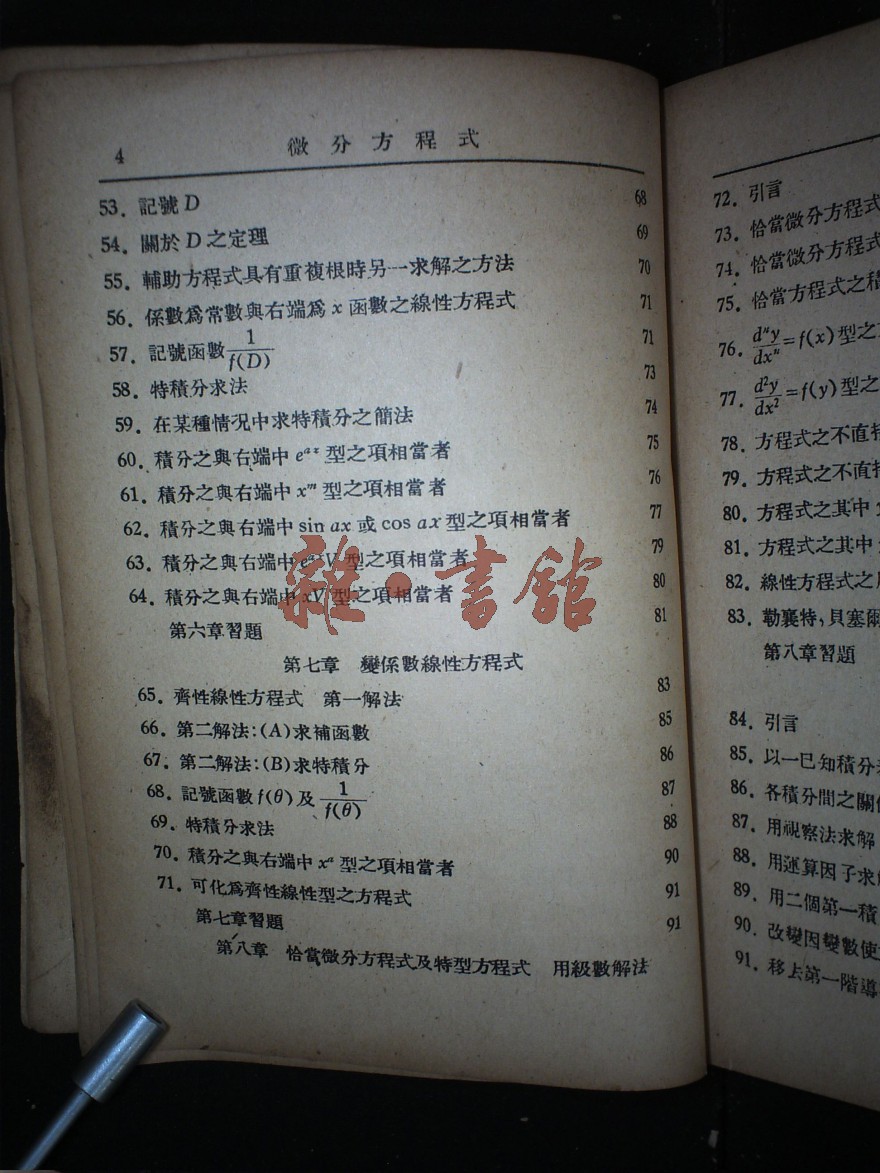 4 微分方程式
53. 記號 D 68
54. 關於 D 之定理 69
55. 輔助方程式具有重複根時另一求解之方法 70
56. 係數爲常數與右端爲 x 函數之線性方程式 71
57. 記號函數 1/f(D) 71
58. 特積分求法 73
59. 在某種情况中求特積分之簡法 74
60. 積分之與右端中 e^{ax} 型之項相當者 75
61. 積分之與右端中 x^m 型之項相當者 76
62. 積分之與右端中 sin ax 或 cos ax 型之項相當者 77
63. 積分之與右端中 e^{ax}V 型之項相當者 79
64. 積分之與右端中 xV 型之項相當者 80
第六章習題 81
第七章 變係數線性方程式
65. 齊性線性方程式 第一解法 83
66. 第二解法:(A)求補函數 85
67. 第二解法:(B)求特積分 86
68. 記號函數 f(θ) 及 1/f(θ) 87
69. 特積分求法 88
70. 積分之與右端中 x^a 型之項相當者 90
71. 可化爲齊性線性型之方程式 91
第七章習題 91
第八章 恰當微分方程式及特型方程式 用級數解法
雜·書館
72. 引言
73. 恰當微分方程式
74. 恰當微分方程式
75. 恰當方程式之積
76. d^n y/dx^n = f(x) 型之
77. d^2 y/dx^2 = f(y) 型之
78. 方程式之不直接
79. 方程式之不直接
80. 方程式之其中
81. 方程式之其中
82. 線性方程式之
83. 勒襄特,貝塞爾
第八章習題
84. 引言
85. 以一已知積分
86. 各積分間之關
87. 用視察法求解
88. 用運算因子求
89. 用二個第一積
90. 改變因變數使
91. 移去第一階導